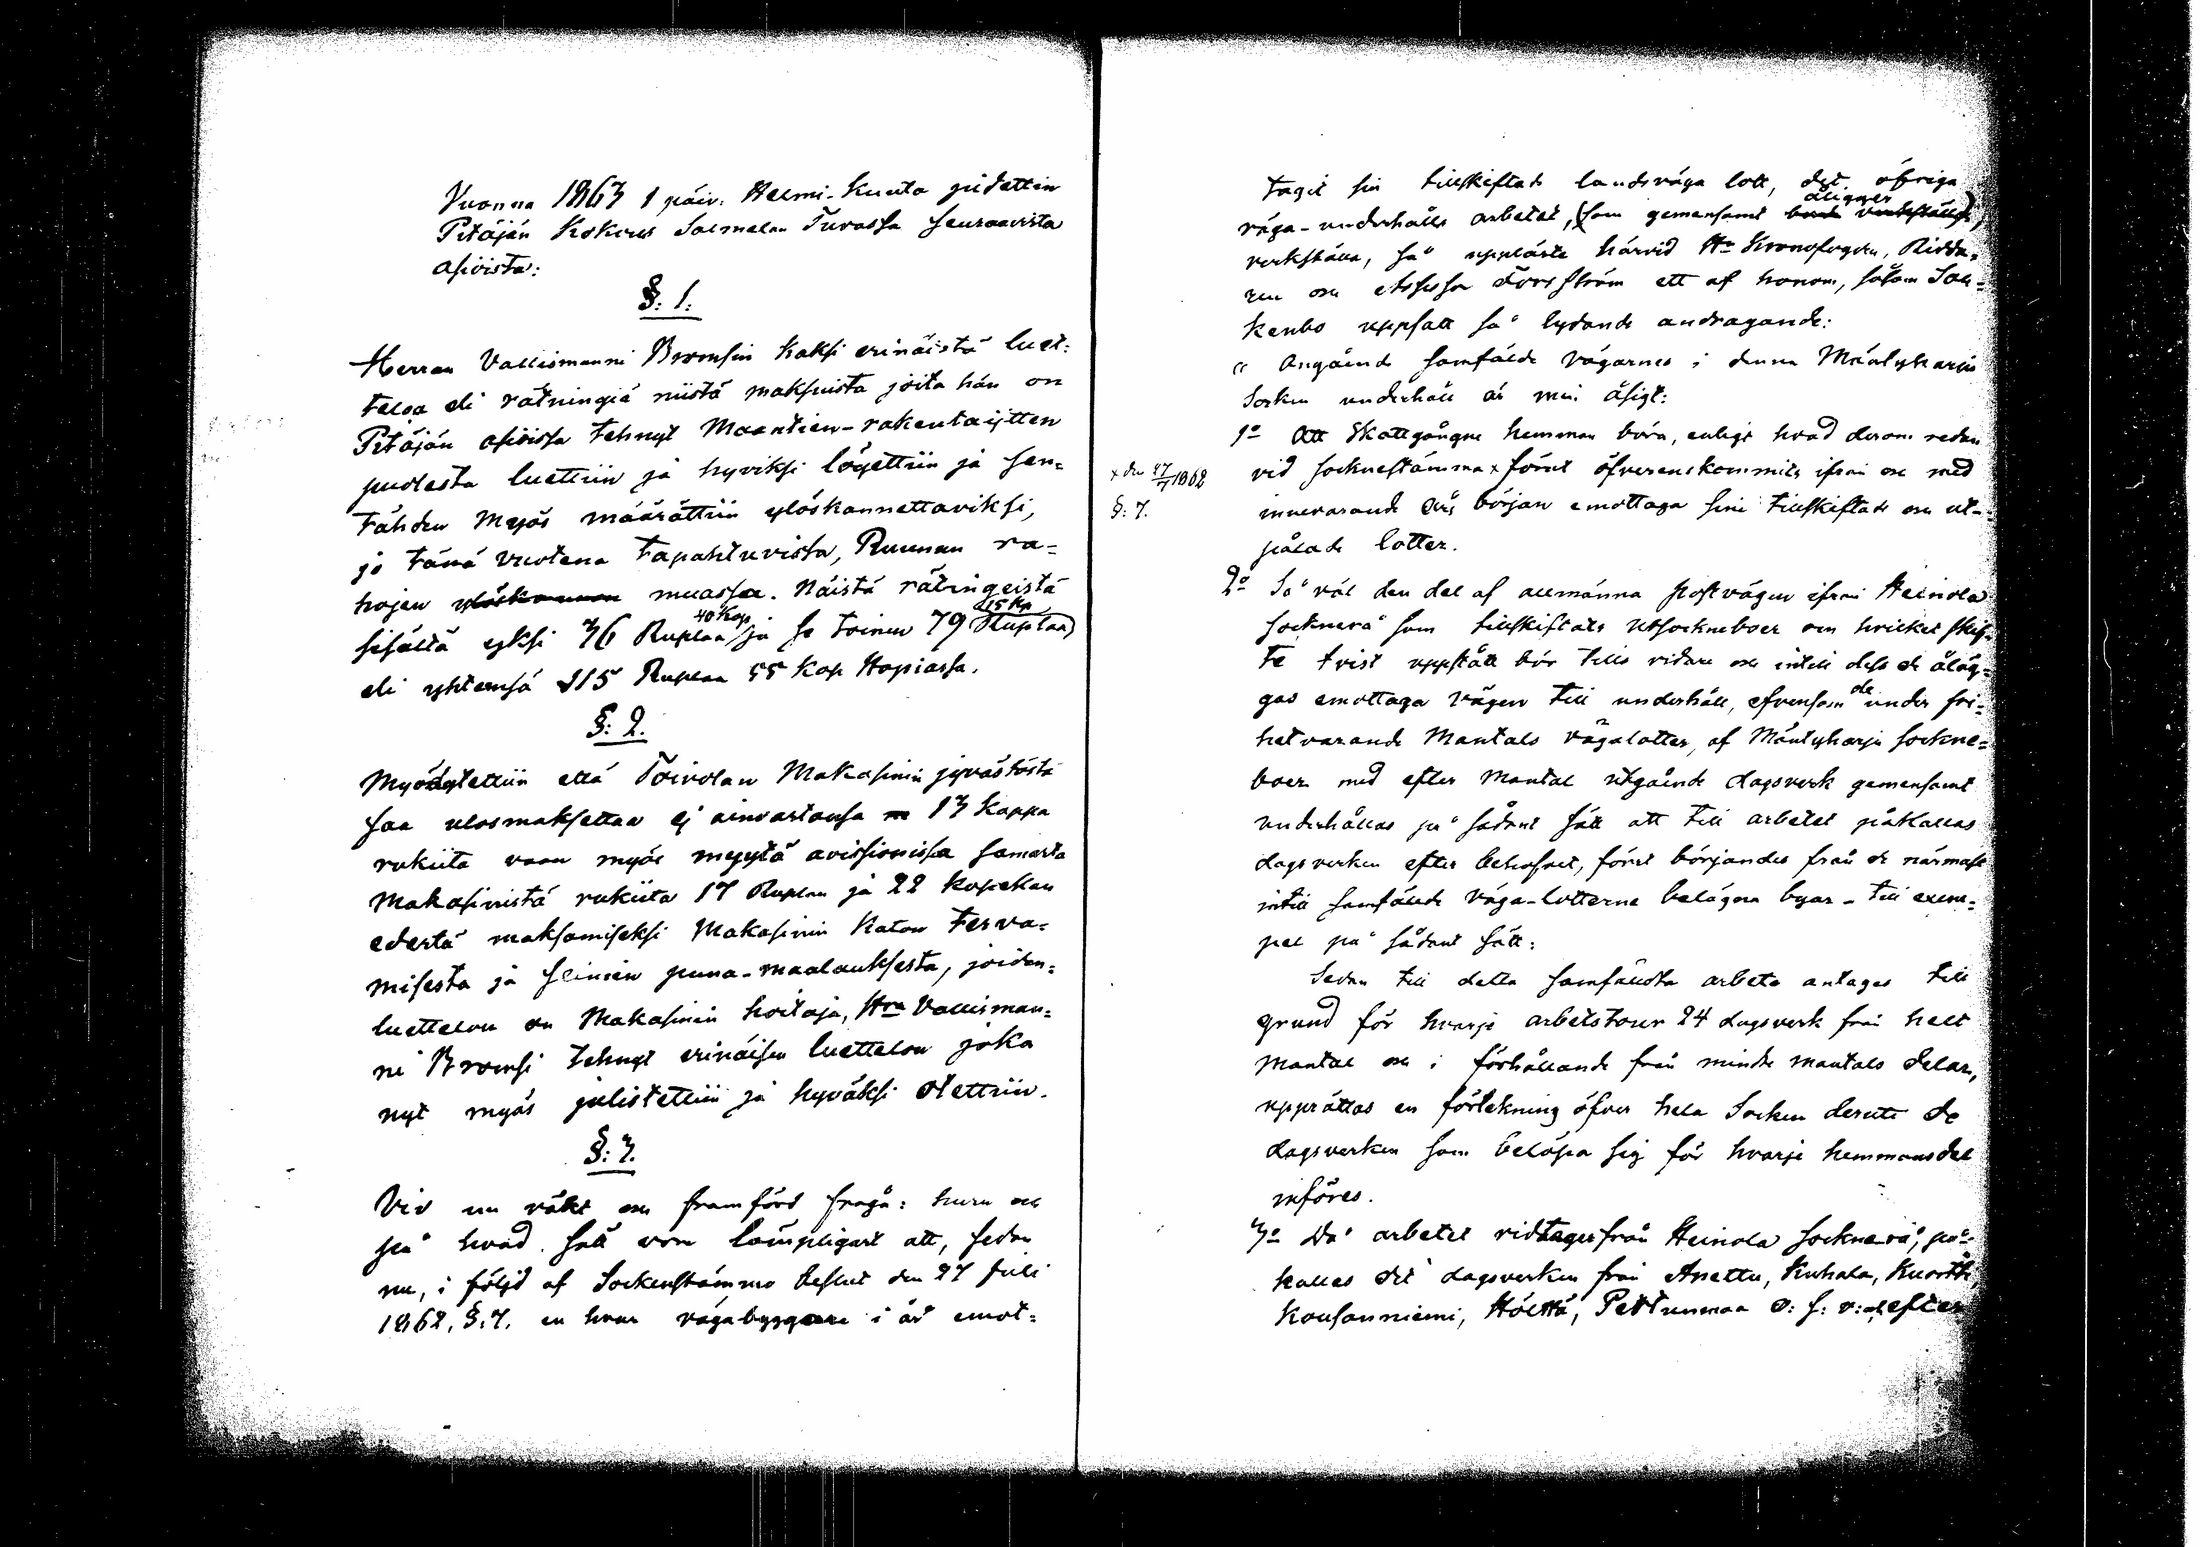 Vuonna 1863 1 päiv. Helmi-Kuuta pidettiin
Pitäjän Kokous Salmelan Tuvassa seuraavista
asioista:
§: 1.
Herran Vallismanni Bromsin kaksi erinäistä luet=
teloa eli rätningiä niistä maksuista joita hän on
Pitäjän asioissa tehnyt Maantien-rakentajitten
puolesta luettiin ja hyviksi löyettiin ja sen=
tähden myös määrättiin ylöskannettaviksi,
jo tänä vuotena tapahtuvista, Ruunun ra=
hojen ylöskannon muassa. Näistä rätingeistä
sisältä yksi 36 Ruplaa 40 Kop ja se toinen 79 Ruplaa 15 Kp
eli yhteensä 115 Ruplaa 55 Kop Hopiassa.
§: 2.
Myödytettiin että Toivolan Makasinin jyvästöstä
saa ulosmaksettaa ej ainoastansa 13 Kappa
rukiita vaan myös myytä avissionissa samasta
Makasinista rukiita 17 Ruplan ja 22 kopekan
edestä maksamiseksi Makasinin Katon terva=
misesta ja seinien puna-maalauksesta, joiden=
luettelon on Makasinin hoitaja, Hra Vallisman=
ni Bromsi tehnyt erinäisen luettelon joka
nyt myös julistettiin ja hyväksi otettiin.
§: 3.
Vid nu väkt och framförd fråga: huru och
på hvad sätt vore lämpligast att, sedan
nu, i följd af Sockenstämmo beslut den 27 Juli
1862, §. 7. en hvar vägabyggare i år emot=
tagit sin tillskiftade landsväga lott, det öfriga
väga-underhålls arbetet, (som gemensamt åligger borde verkställas)
verkställa, så uppläste härvid Hr Kronofogden, Ridda=
ren och Assessor Forsström ett af honom, såsom Soc=
kenbo uppsatt så lydande andragande:
"Angående samfälde vägarnes i denna Mäntyharju
Socken underhåll är min åsigt:
1o Att Skattgångne hemman böra, enligt hvad derom redan
vid sockenstämma x förut öfverenskommits ifrån och med
x den 27/7 1862
§: 7.
innevarande års början emottaga sine tillskiftade och ut=
pålade lotter.
2o Så väl den del af allmänna postvägen ifrån Heinola
sockenrå som tillskiftats Utsockneboer om hvilket skif=
te tvist uppstått bör tills vidare och intill dess de åläg=
gas emottaga vägen till underhåll, äfvensom de under fri=
hetvarande Mantals vägalotter, af Mäntyharju sockne=
boer med efter Mantal utgående dagsverk gemensamt
underhållas på sådant sätt att till arbetet påkallas
dagsverken efter behofvet, först börjandes från de närmast
intill samfälde väga-lotterne belägna byar - till exem=
pel på sådant sätt:
Sedan till detta samfällda arbete antages till
grund för hvarje arbetstour 24 dagsverk från helt
Mantal och i förhållande från mindre mantals delar,
upprättas en förtekning öfver hela Socken deruti de
dagsverken som belöpa sig för hvarje hemmansdel
införes.
3o Då arbetet vidtager från Heinola socknerå, på=
kallas dit dagsverken från Anettu, Kuhala, Kuortti,
Kousanniemi, Höltä, Pettunmaa o: s: v: efter